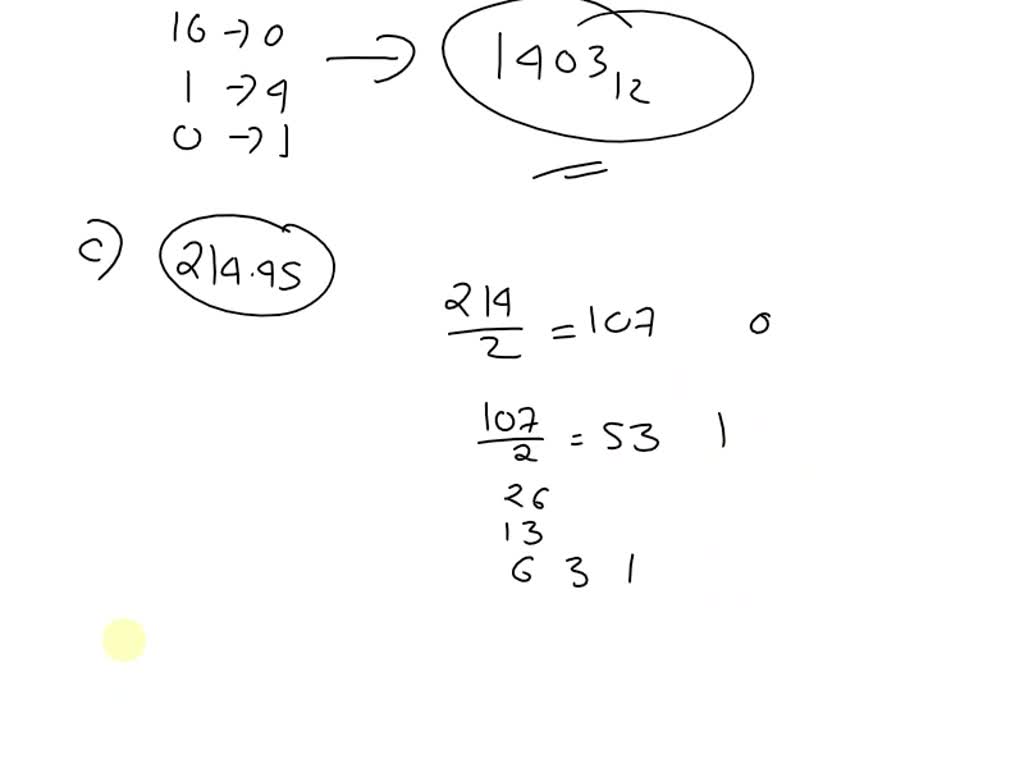 16 → 0
1 → 4
0 → 1
→ 1403₁₂
c) 214.45
214/2 = 107 0
107/2 = 53 1
26
13
6 3 1